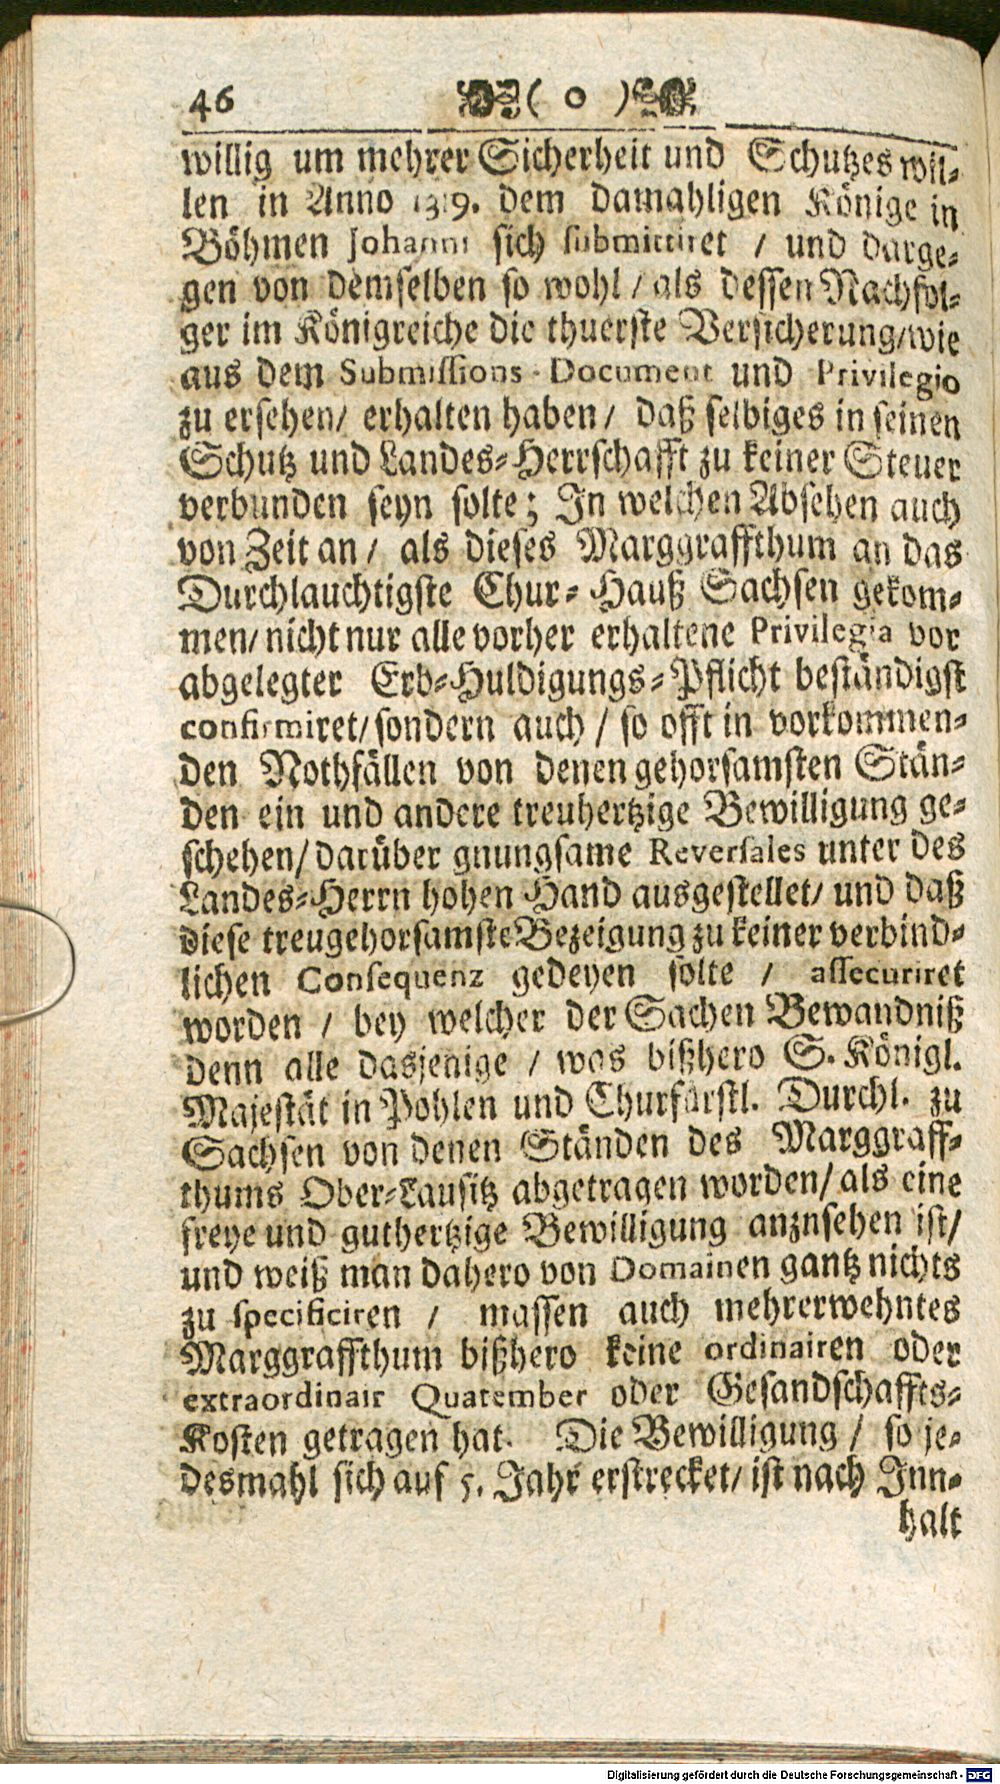 46 ( o )
willig um mehrer Sicherheit und Schutzes wil-
len in Anno 1319. dem damahligen Könige in
Böhmen Johanni sich submittiret / und darge-
gen von demselben so wohl / als dessen Nachfol-
ger im Königreiche die thuerste Versicherung/wie
aus dem Submissions-Document und Privilegio
zu ersehen/ erhalten haben / daß selbiges in seinen
Schutz und Landes-Herrschafft zu keiner Steuer
verbunden seyn solte; In welchen Absehen auch
von Zeit an / als dieses Marggraffthum an das
Durchlauchtigste Chur-Hauß Sachsen gekom-
men/ nicht nur alle vorher erhaltene Privilegia vor
abgelegter Erb-Huldigungs-Pflicht beständigst
confirmiret/ sondern auch / so offt in vorkommen-
den Nothfällen von denen gehorsamsten Stän-
den ein und andere treuhertzige Bewilligung ge-
schehen/ darüber gnungsame Reversales unter des
Landes-Herrn hohen Hand ausgestellet/ und daß
diese treugehorsamste Bezeigung zu keiner verbind-
lichen Consequenz gedeyen solte / assecuriret
worden / bey welcher der Sachen Bewandniß
denn alle dasjenige / was bißhero S. Königl.
Majestät in Pohlen und Churfürstl. Durchl. zu
Sachsen von denen Ständen des Marggraff-
thums Ober-Lausitz abgetragen worden/ als eine
freye und guthertzige Bewilligung anznsehen ist/
und weiß man dahero von Domainen gantz nichts
zu specificiren / massen auch mehrerwehntes
Marggraffthum bißhero keine ordinairen oder
extraordinair Quatember oder Gesandschaffts-
Kosten getragen hat. Die Bewilligung / so je-
desmahl sich auf 5. Jahr erstrecket/ ist nach Inn-
halt
Digitalisierung gefördert durch die Deutsche Forschungsgemeinschaft - DFG